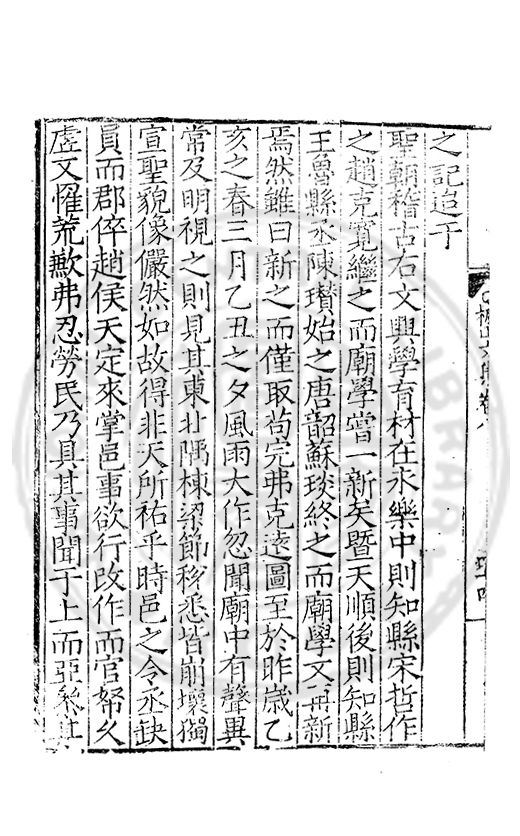 之記迨于
聖朝稽古右文興學育材在永樂中則知縣宋哲作
之趙克寬繼之而廟學嘗一新矣暨天順後則知縣
王魯縣丞陳瓚始之唐韶蘇琰終之而廟學又再新
焉然雖曰新之而僅取苟完弗克遠圖至於昨歲乙
亥之春三月乙丑之夕風雨大作忽聞廟中有聲異
常及明視之則見其東北隅棟梁節移悉皆崩壞獨
宣聖貌像儼然如故得非天所祐乎時邑之令丞缺
員而郡倅趙侯天定來掌邑事欲行改作而官帑久
虛又惟荒歉弗忍勞民乃具其事聞于上而亞叅其
集卷八
四